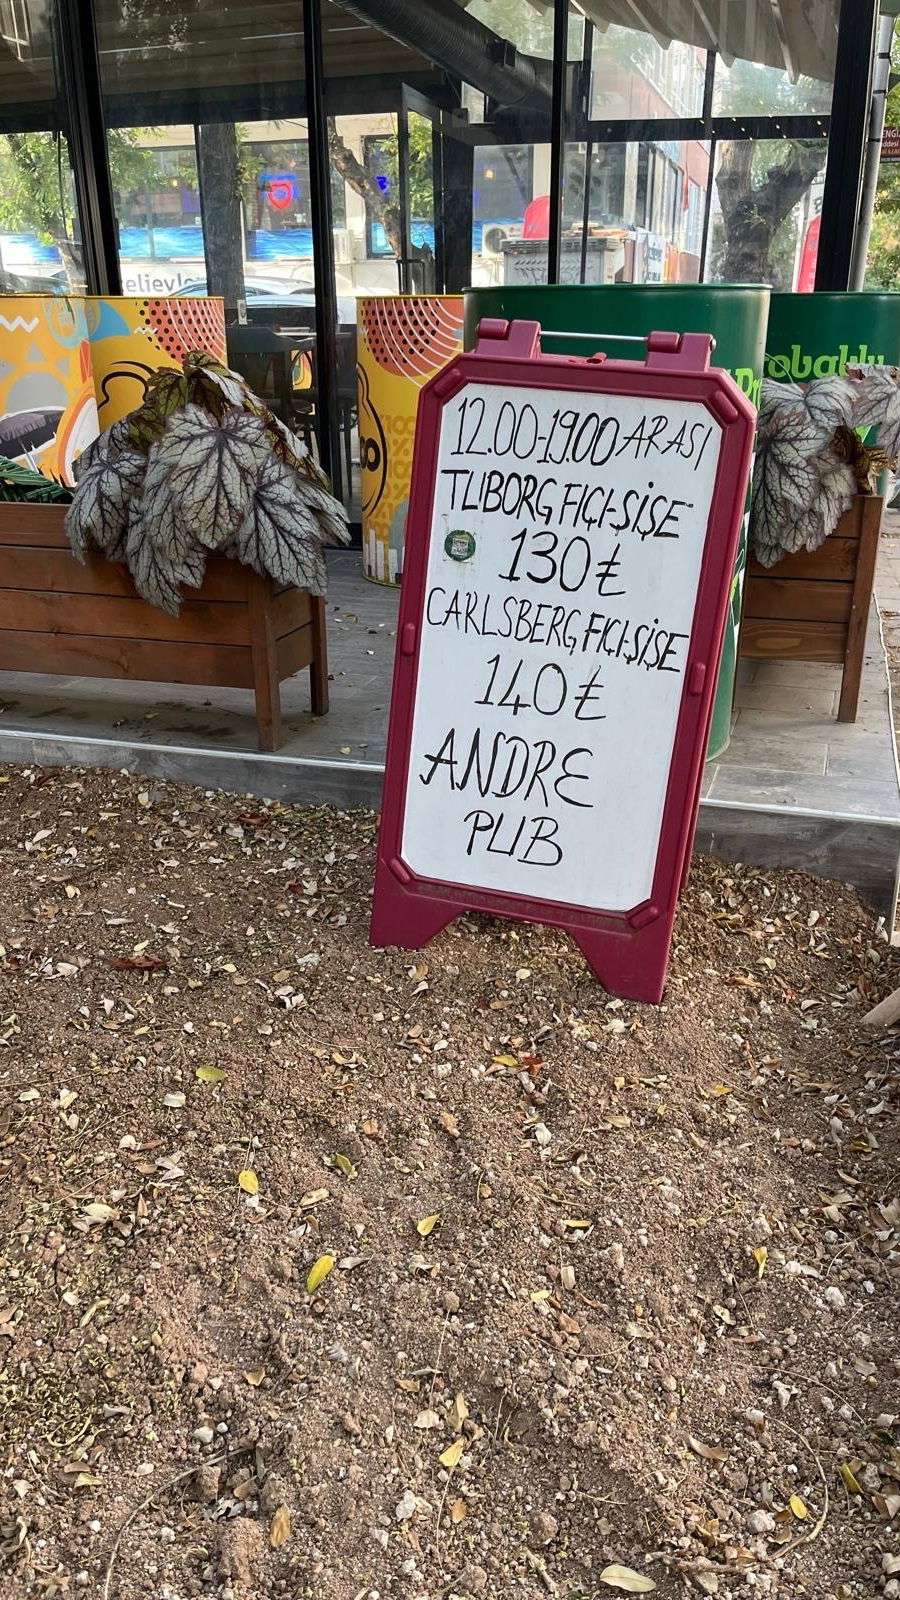 12.00-19.00 ARASI
TUBORG FIÇI-ŞİŞE
130₺
CARLSBERG FIÇI-ŞİŞE
140₺
ANDRE
PUB
elievle
obably